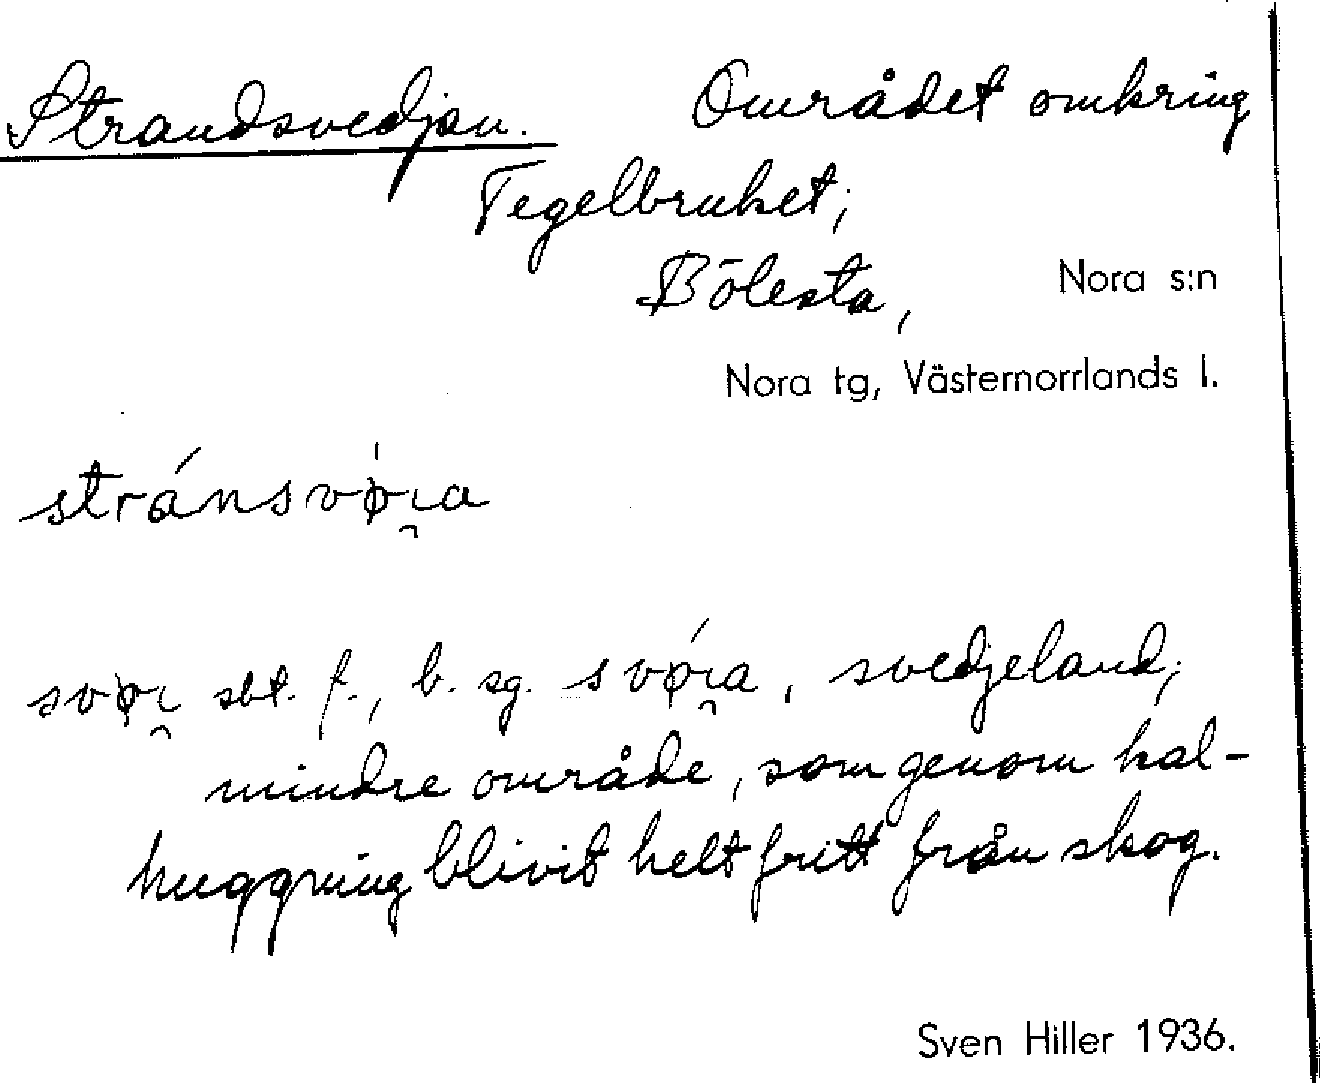 Strandsvedjan. Området omkring
Tegelbruket;
Bölesta, Nora s:n
Nora tg, Västernorrlands l.
stránsvø̀ı̯a
svøı̯ sbt. f., b. sg. svǿı̯a, svedjeland;
mindre område, som genom kal-
huggning blivit helt fritt från skog.
Sven Hiller 1936.